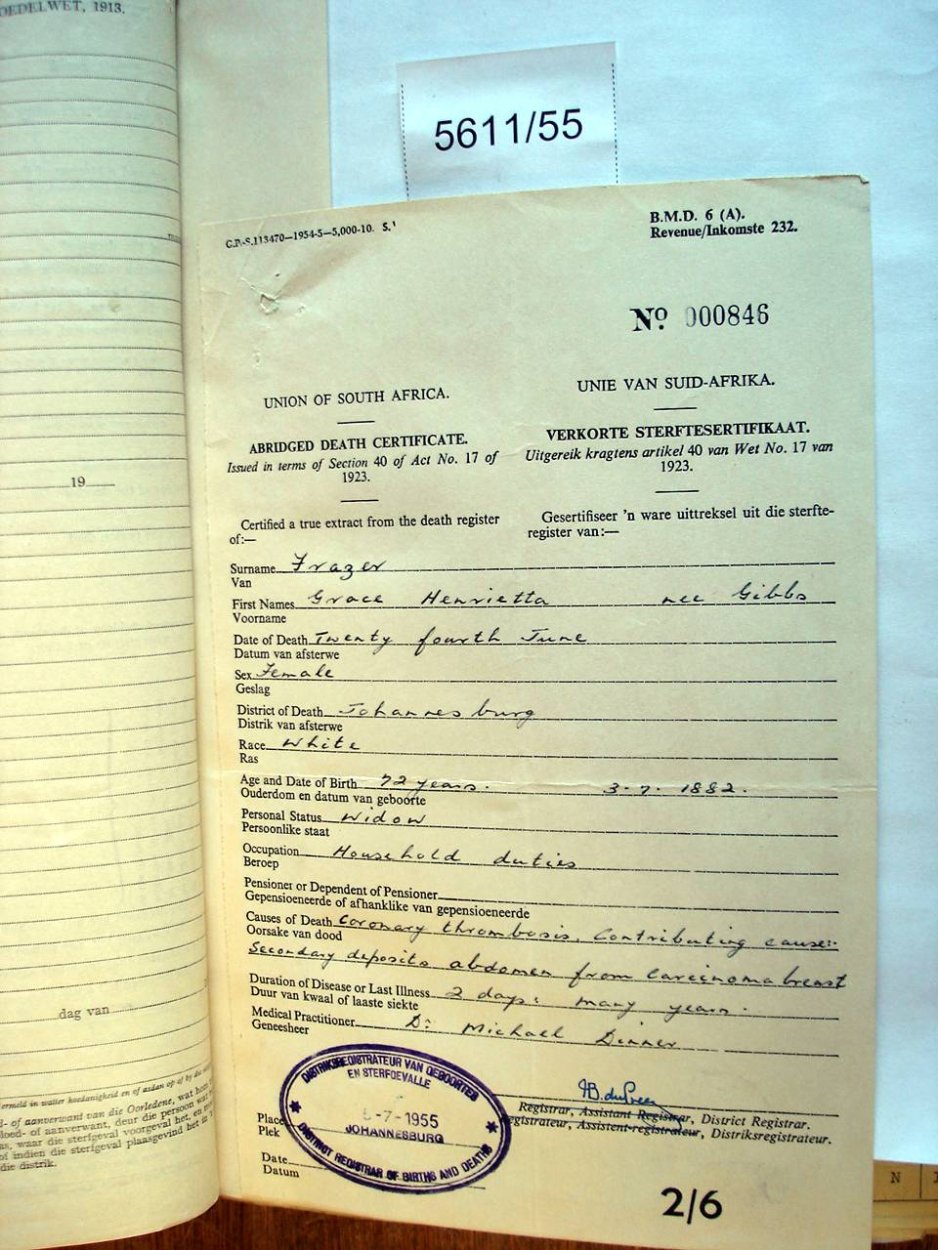 OEDELWET, 1913.
19
dag van
ermeld in watter hoedanigheid en of
d- of aanverwant van die Oorledene, wat
loed- of aanverwant, deur die persoon wat
s, waar die sterfgeval voorgeval het, en
of indien die sterfgeval plaasgevind het in
die distrik.
5611/55
G.P.-S.113470—1954-5—5,000-10. S.
B.M.D. 6 (A).
Revenue/Inkomste 232.
No. 000846
UNION OF SOUTH AFRICA.
UNIE VAN SUID-AFRIKA.
ABRIDGED DEATH CERTIFICATE.
Issued in terms of Section 40 of Act No. 17 of
1923.
VERKORTE STERFTESERTIFIKAAT.
Uitgereik kragtens artikel 40 van Wet No. 17 van
1923.
Certified a true extract from the death register
of:—
Gesertifiseer 'n ware uittreksel uit die sterfte-
register van:—
Surname Frazer
Van
First Names Grace Henrietta nee Gibbs
Voorname
Date of Death Twenty fourth June
Datum van afsterwe
Sex Female
Geslag
District of Death Johannesburg
Distrik van afsterwe
Race White
Ras
Age and Date of Birth 72 years. 3-7-1882.
Ouderdom en datum van geboorte
Personal Status Widow
Persoonlike staat
Occupation Household duties
Beroep
Pensioner or Dependent of Pensioner
Gepensioeneerde of afhanklike van gepensioeneerde
Causes of Death Coronary thrombosis. Contributing cause:-
Oorsake van dood
Secondary deposits abdomen from carcinoma breast
Duration of Disease or Last Illness 2 days: many years.
Duur van kwaal of laaste siekte
Medical Practitioner Dr Michael Dinner
Geneesheer
DISTRIKSREGISTRATEUR VAN GEBOORTES
EN STERFGEVALLE
-7-1955
JOHANNESBURG
DISTRICT REGISTRAR OF BIRTHS AND DEATHS
Registrar, Assistant Registrar, District Registrar.
egistrateur, Assistent-registrateur, Distriksregistrateur.
Place
Plek
Date
Datum
2/6
N